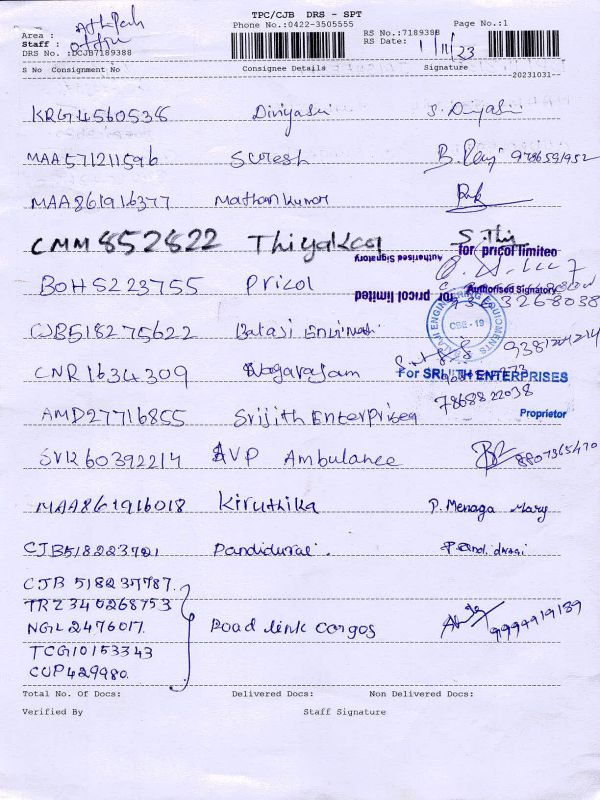 TPC/CJB DRS - SPT
Phone No.:0422-3505555
Page No.:1
Area :
Staff :
DRS No. :DCJB7189388
RS No.:7189388
RS Date: 1/11/23
S No Consignment No Consignee Details Signature
20231031--
KRG4560538 Divyasri S. Divyasri
MAA571211596 Suresh B. Ravi 9786591952
MAA861916377 Mathankumar
CMM852822 Thiyakaa S. Thiy
for pricol limited
Authorised Signatory
BOH5223755 Pricol
Authorised Signatory
for pricol limited
7363268038
CJB518275622 Balaji
BALAJI ENGINEERING EQUIPMENTS
CBE - 19
9381224214
CNR1634309 Nagarajam
For SRIJITH ENTERPRISES
7868822038
AMD27716855 Srijith Enterprises
Proprietor
SVR60392214 AVP Ambulance 8807365470
MAA861916018 Kiruthika P. Menaga Mary
CJB518223721 Pandidurai. Pandidurai
CJB 518237787.
TRZ340268753
NGL2476017. Road link cargos 9994919139
TCG10153343
CUP429980.
Total No. Of Docs: Delivered Docs: Non Delivered Docs:
Verified By Staff Signature